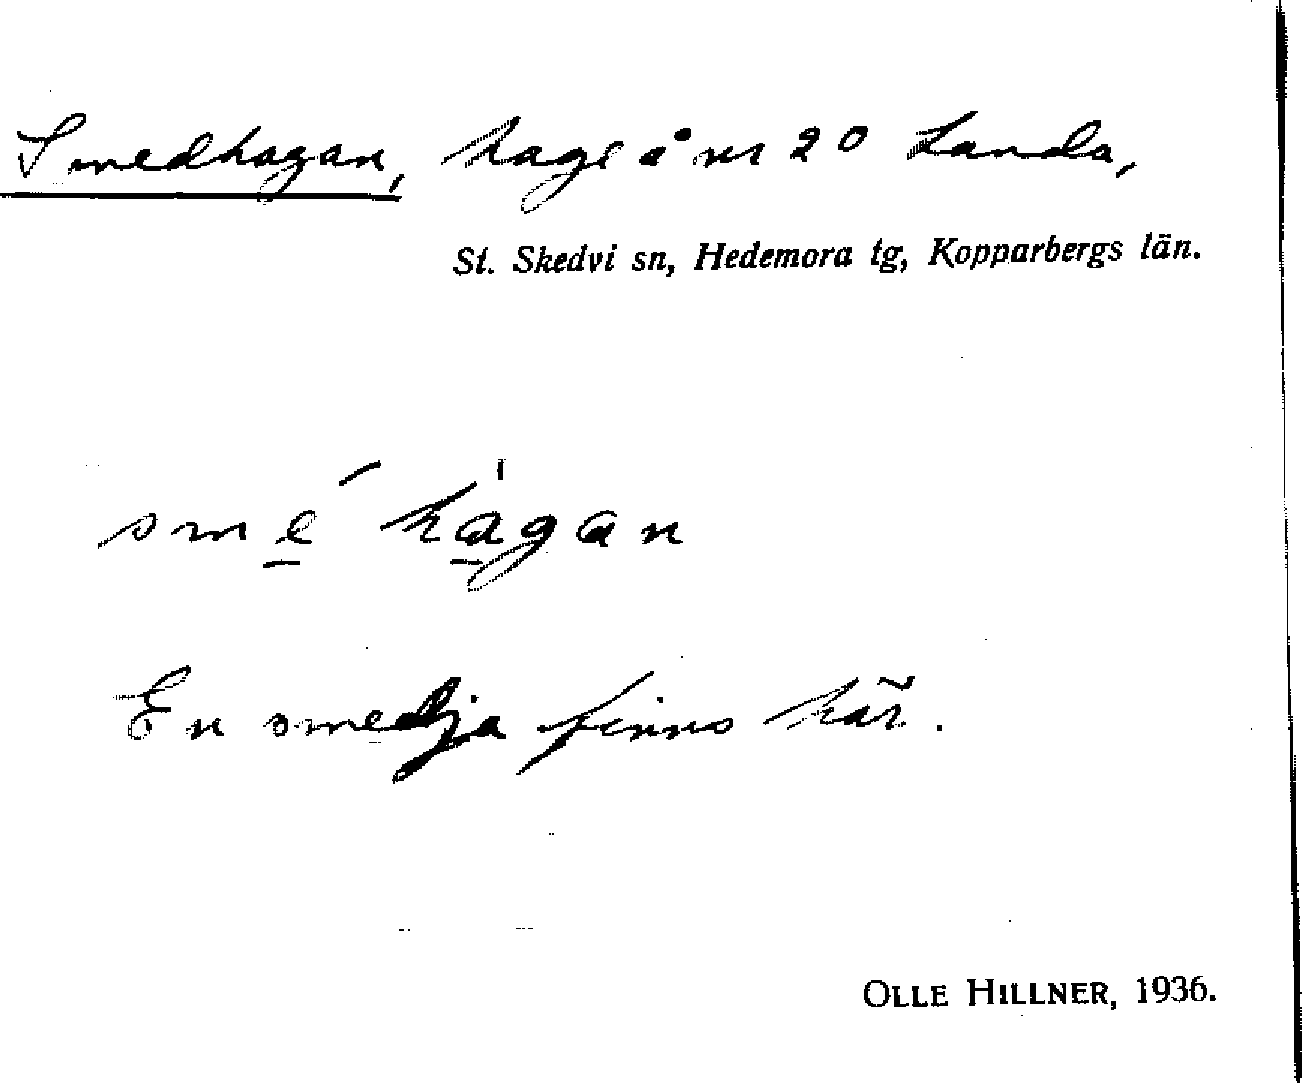 Smedhagan, hage å nr 20 Landa,
St. Skedvi sn, Hedemora tg, Kopparbergs län.
sme̱´ ha̱̍gan
En smedja finns här.
OLLE HILLNER, 1936.